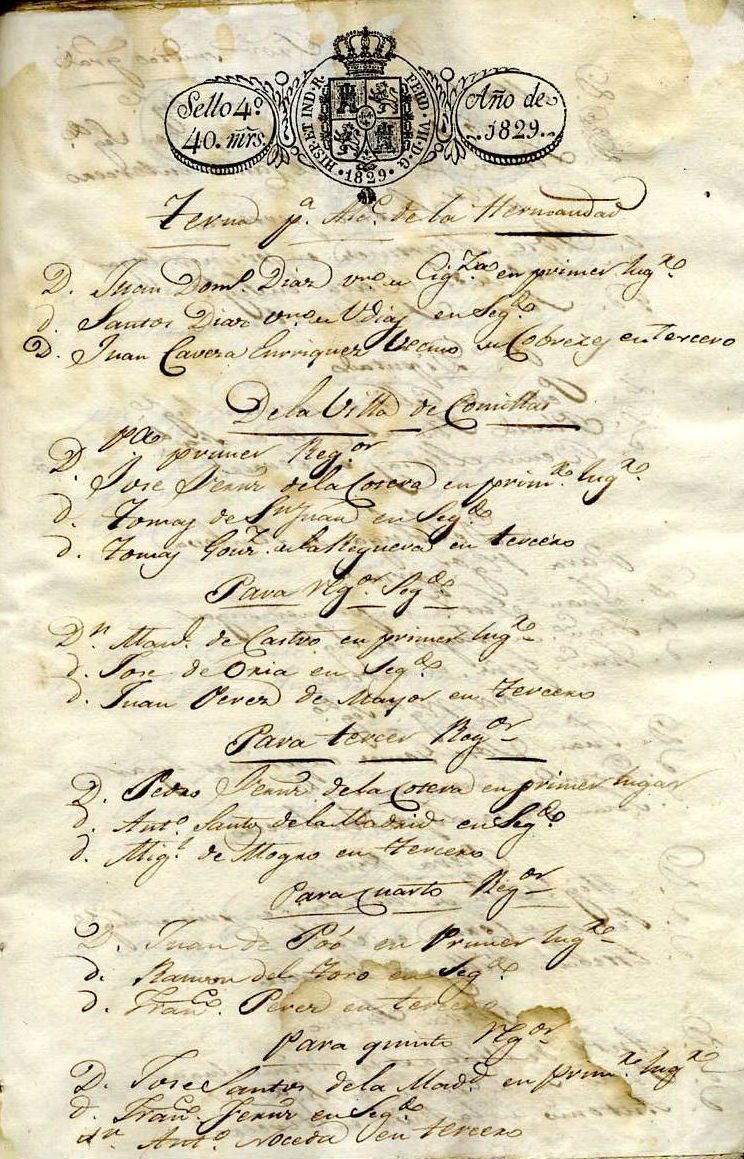 Sello 4º
40. mrs.
HISP. ET IND. R. FERD. VII. D. G.
·1829·
Año de
1829.
Terna pª Alcᵉ de la Hermandad
D. Juan Domº Diaz vnº de Cigªᶻᵃ en primer lugʳ
d. Santos Diaz vnº de Udias en Segᵈᵒ
D. Juan Caveza Enrriquez Vecino de Cobrezes en tercero
De la Villa de Comillas
pª primer Regᵒʳ
D. Jose Fernz de la Cotera en primʳ lugʳ
d. Tomas de Sn Juan en Segᵈᵒ
d. Tomas Gonz de la Reguera en tercero
Para Rgᵒʳ Segᵈᵒ
Dⁿ Manˡ de Castro en primer lugʳ
d. Jose de Oria en Segᵈᵒ
d. Juan Perez de Mayor en tercero
Para tercer Regᵒʳ
D. Pedro Fernz de la Cotera en primer lugar
d. Antº Santos de la Madrid en Segᵈᵒ
d. Migˡ de Mogro en tercero
Para Cuarto Regᵒʳ
D. Juan de Poó en Primer lugʳ
d. Ramon del Toro en Segᵈᵒ
d. Francº Perez en tercero
para quinto Rgᵒʳ
D. Jose Santos de la Madᵈ en primʳ lugʳ
d. Francº Fernz en Segᵈᵒ
dⁿ Antº Noceda en tercero